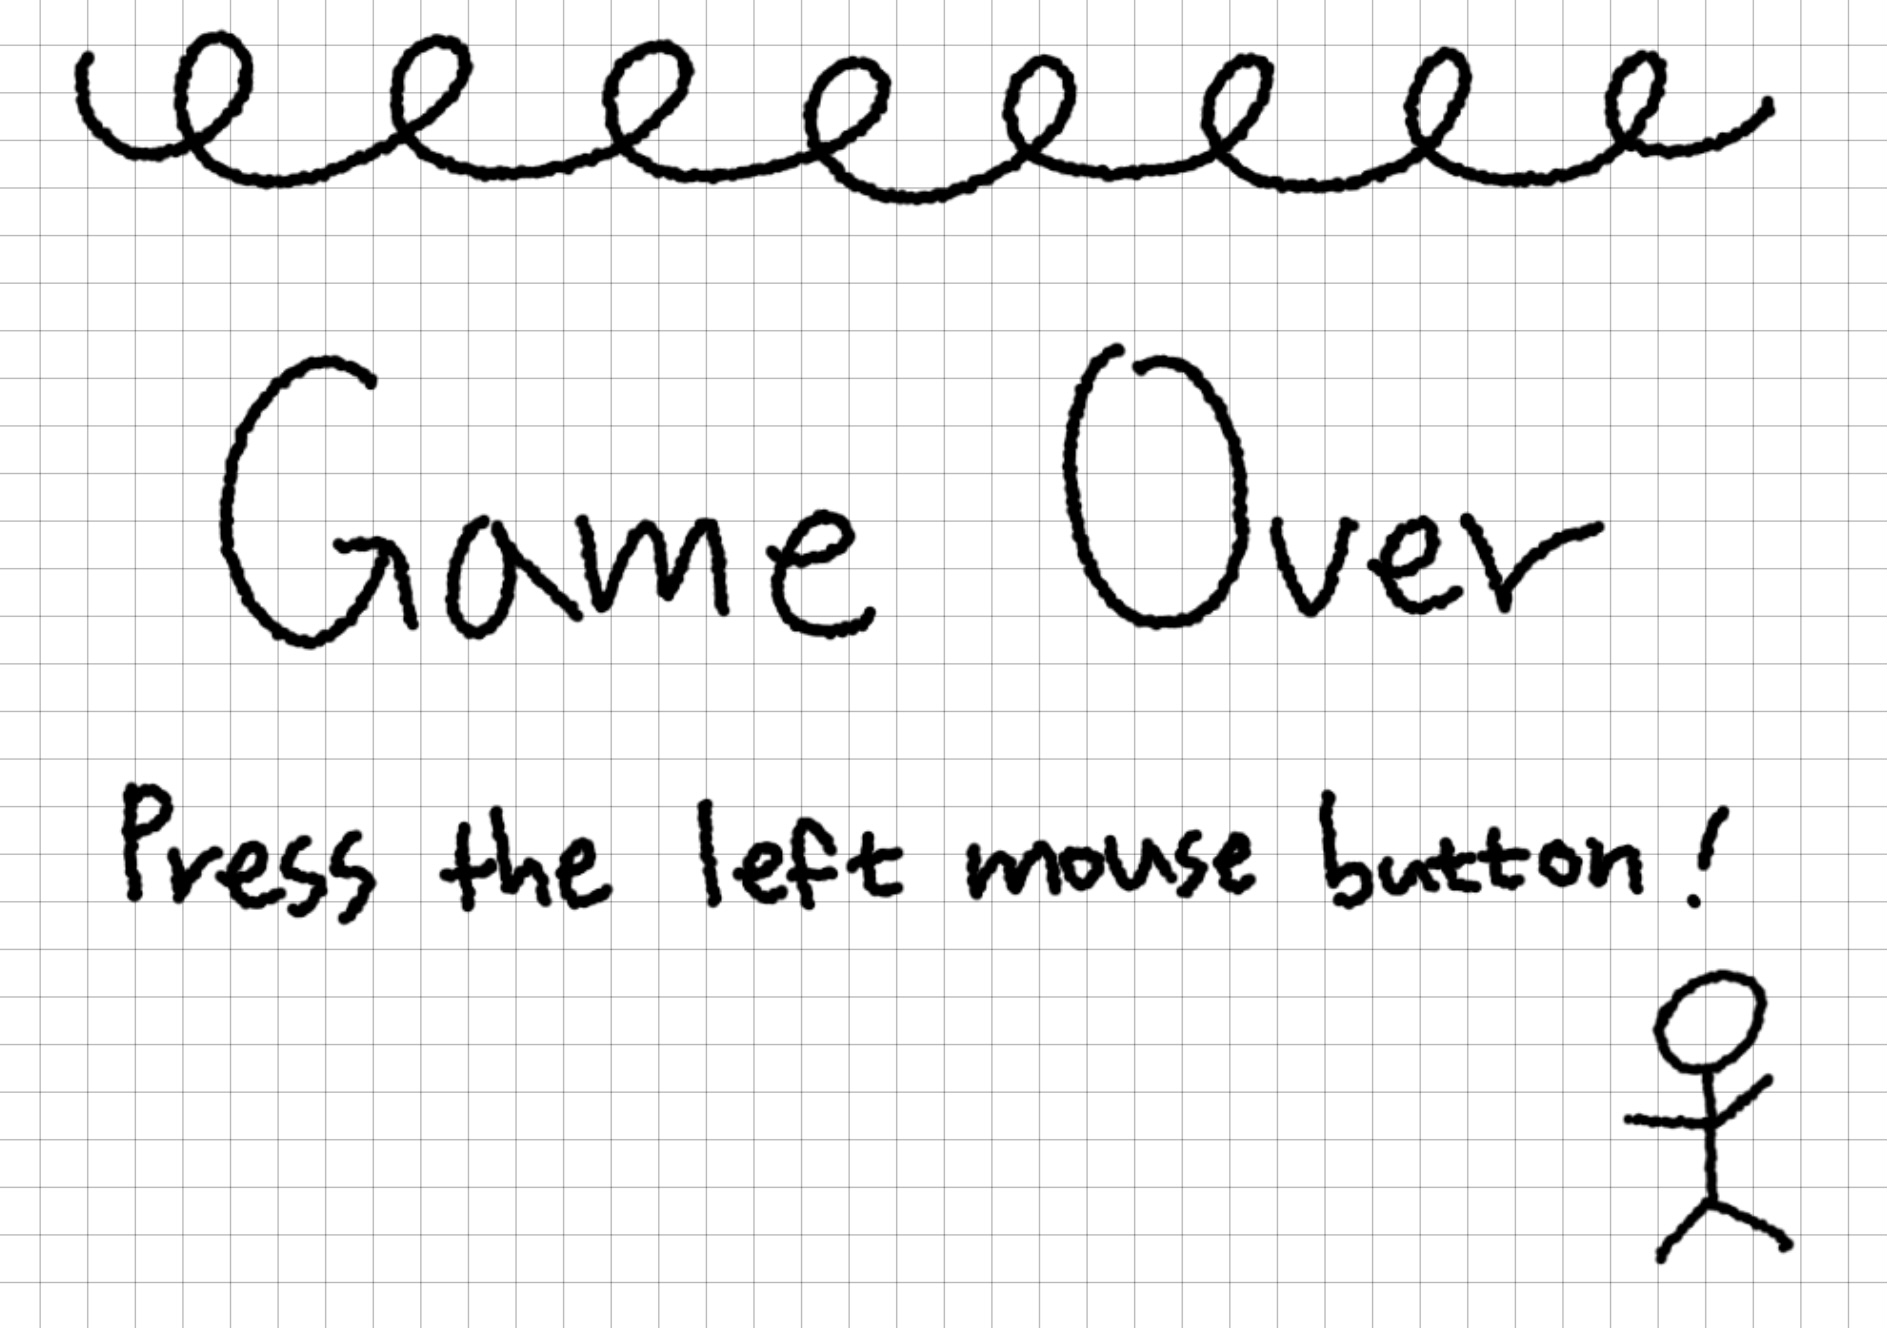 Game Over
Press the left mouse button!